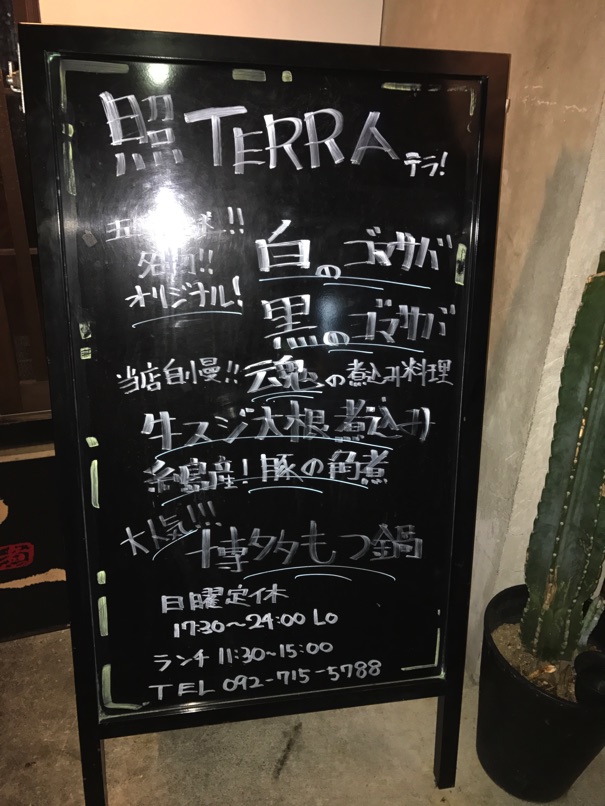 照 TERRA テラ!
!!
名物!!
オリジナル!
白のゴマサバ
黒のゴマサバ
当店自慢!! 魂の煮込み料理
牛スジ大根煮込み
糸島産!豚の角煮
大人気!!! 博多もつ鍋
日曜定休
17:30〜24:00 Lo
ランチ 11:30〜15:00
TEL 092-715-5788